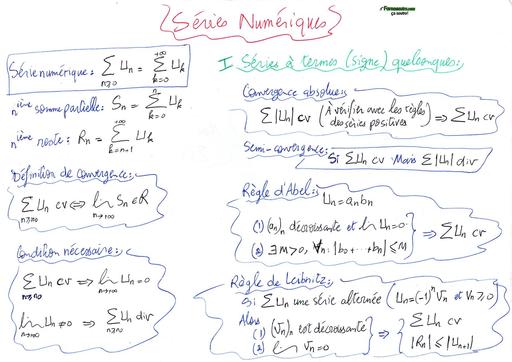 Séries Numériques
Série numérique: ∑_{n≥0} Un = ∑_{k=0}^{+∞} Uk
n ième somme partielle: Sn = ∑_{k=0}^{n} Uk
n ième reste: Rn = ∑_{k=n+1}^{+∞} Uk
Définition de convergence:
∑_{n≥n0} Un cv ⟺ lim_{n→+∞} Sn ∈ ℝ
Condition nécessaire:
∑_{n≥n0} Un cv ⟹ lim_{n→+∞} Un = 0
lim_{n→+∞} Un ≠ 0 ⟹ ∑_{n≥n0} Un div
I Séries à termes (signe) quelconques:
Convergence absolue:
∑|Un| cv (À vérifier avec les règles des séries positives) ⟹ ∑ Un cv
Semi-convergence:
Si ∑ Un cv Mais ∑|Un| div
Règle d'Abel:
Un = an bn
(1) (an)n décroissante et lim Un = 0
(2) ∃ M>0, ∀n: |b0 + ... + bn| ≤ M
⟹ ∑ Un cv
Règle de Leibnitz:
Si ∑ Un une série alternée (Un = (-1)^n Vn et Vn ≥ 0)
Alors
(1) (Vn)n est décroissante
(2) lim Vn = 0
⟹ { ∑ Un cv
|Rn| ≤ |Un+1|